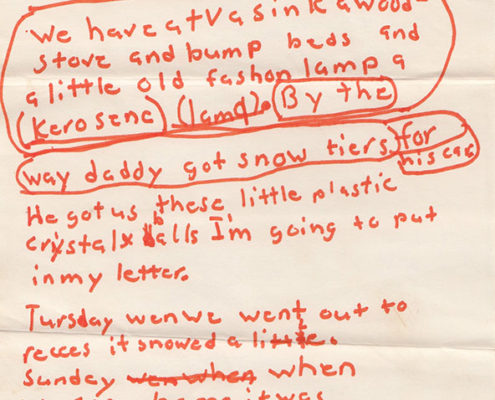 We have a tv a sink a wood-
stove and bump beds and
a little old fashon lamp a
(kerosene) (lamp). By the
way daddy got snow tiers for
his car
He got us these little plastic
crystalx balls I'm going to put
in my letter.
Tursday wen we went out to
recces it snowed a little.
Sunday wen when when
home it was